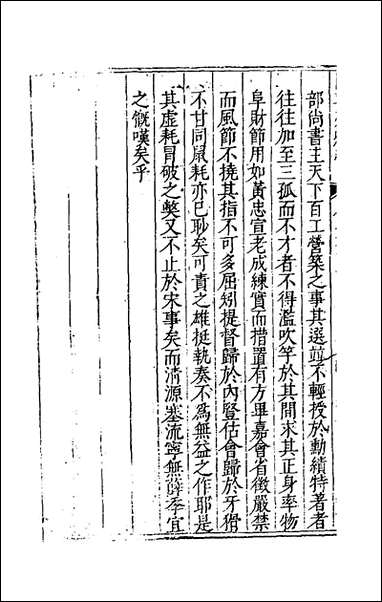 部尚書主天下百工營築之事其選並不輕授於勳績特著者
往往加至三孤而不才者不得濫吹竽於其間求其正身率物
阜財節用如黃忠宣老成練實而措置有方畢嘉會省徵嚴禁
而風節不撓其指不可多屈矧提督歸於內豎估會歸於牙猾
不甘同鼠耗亦已眇矣可責之雄挺執奏不爲無益之作耶是
其虛耗冒破之獘又不止於宋事矣而清源塞流寧無薛季宜
之慨嘆矣乎